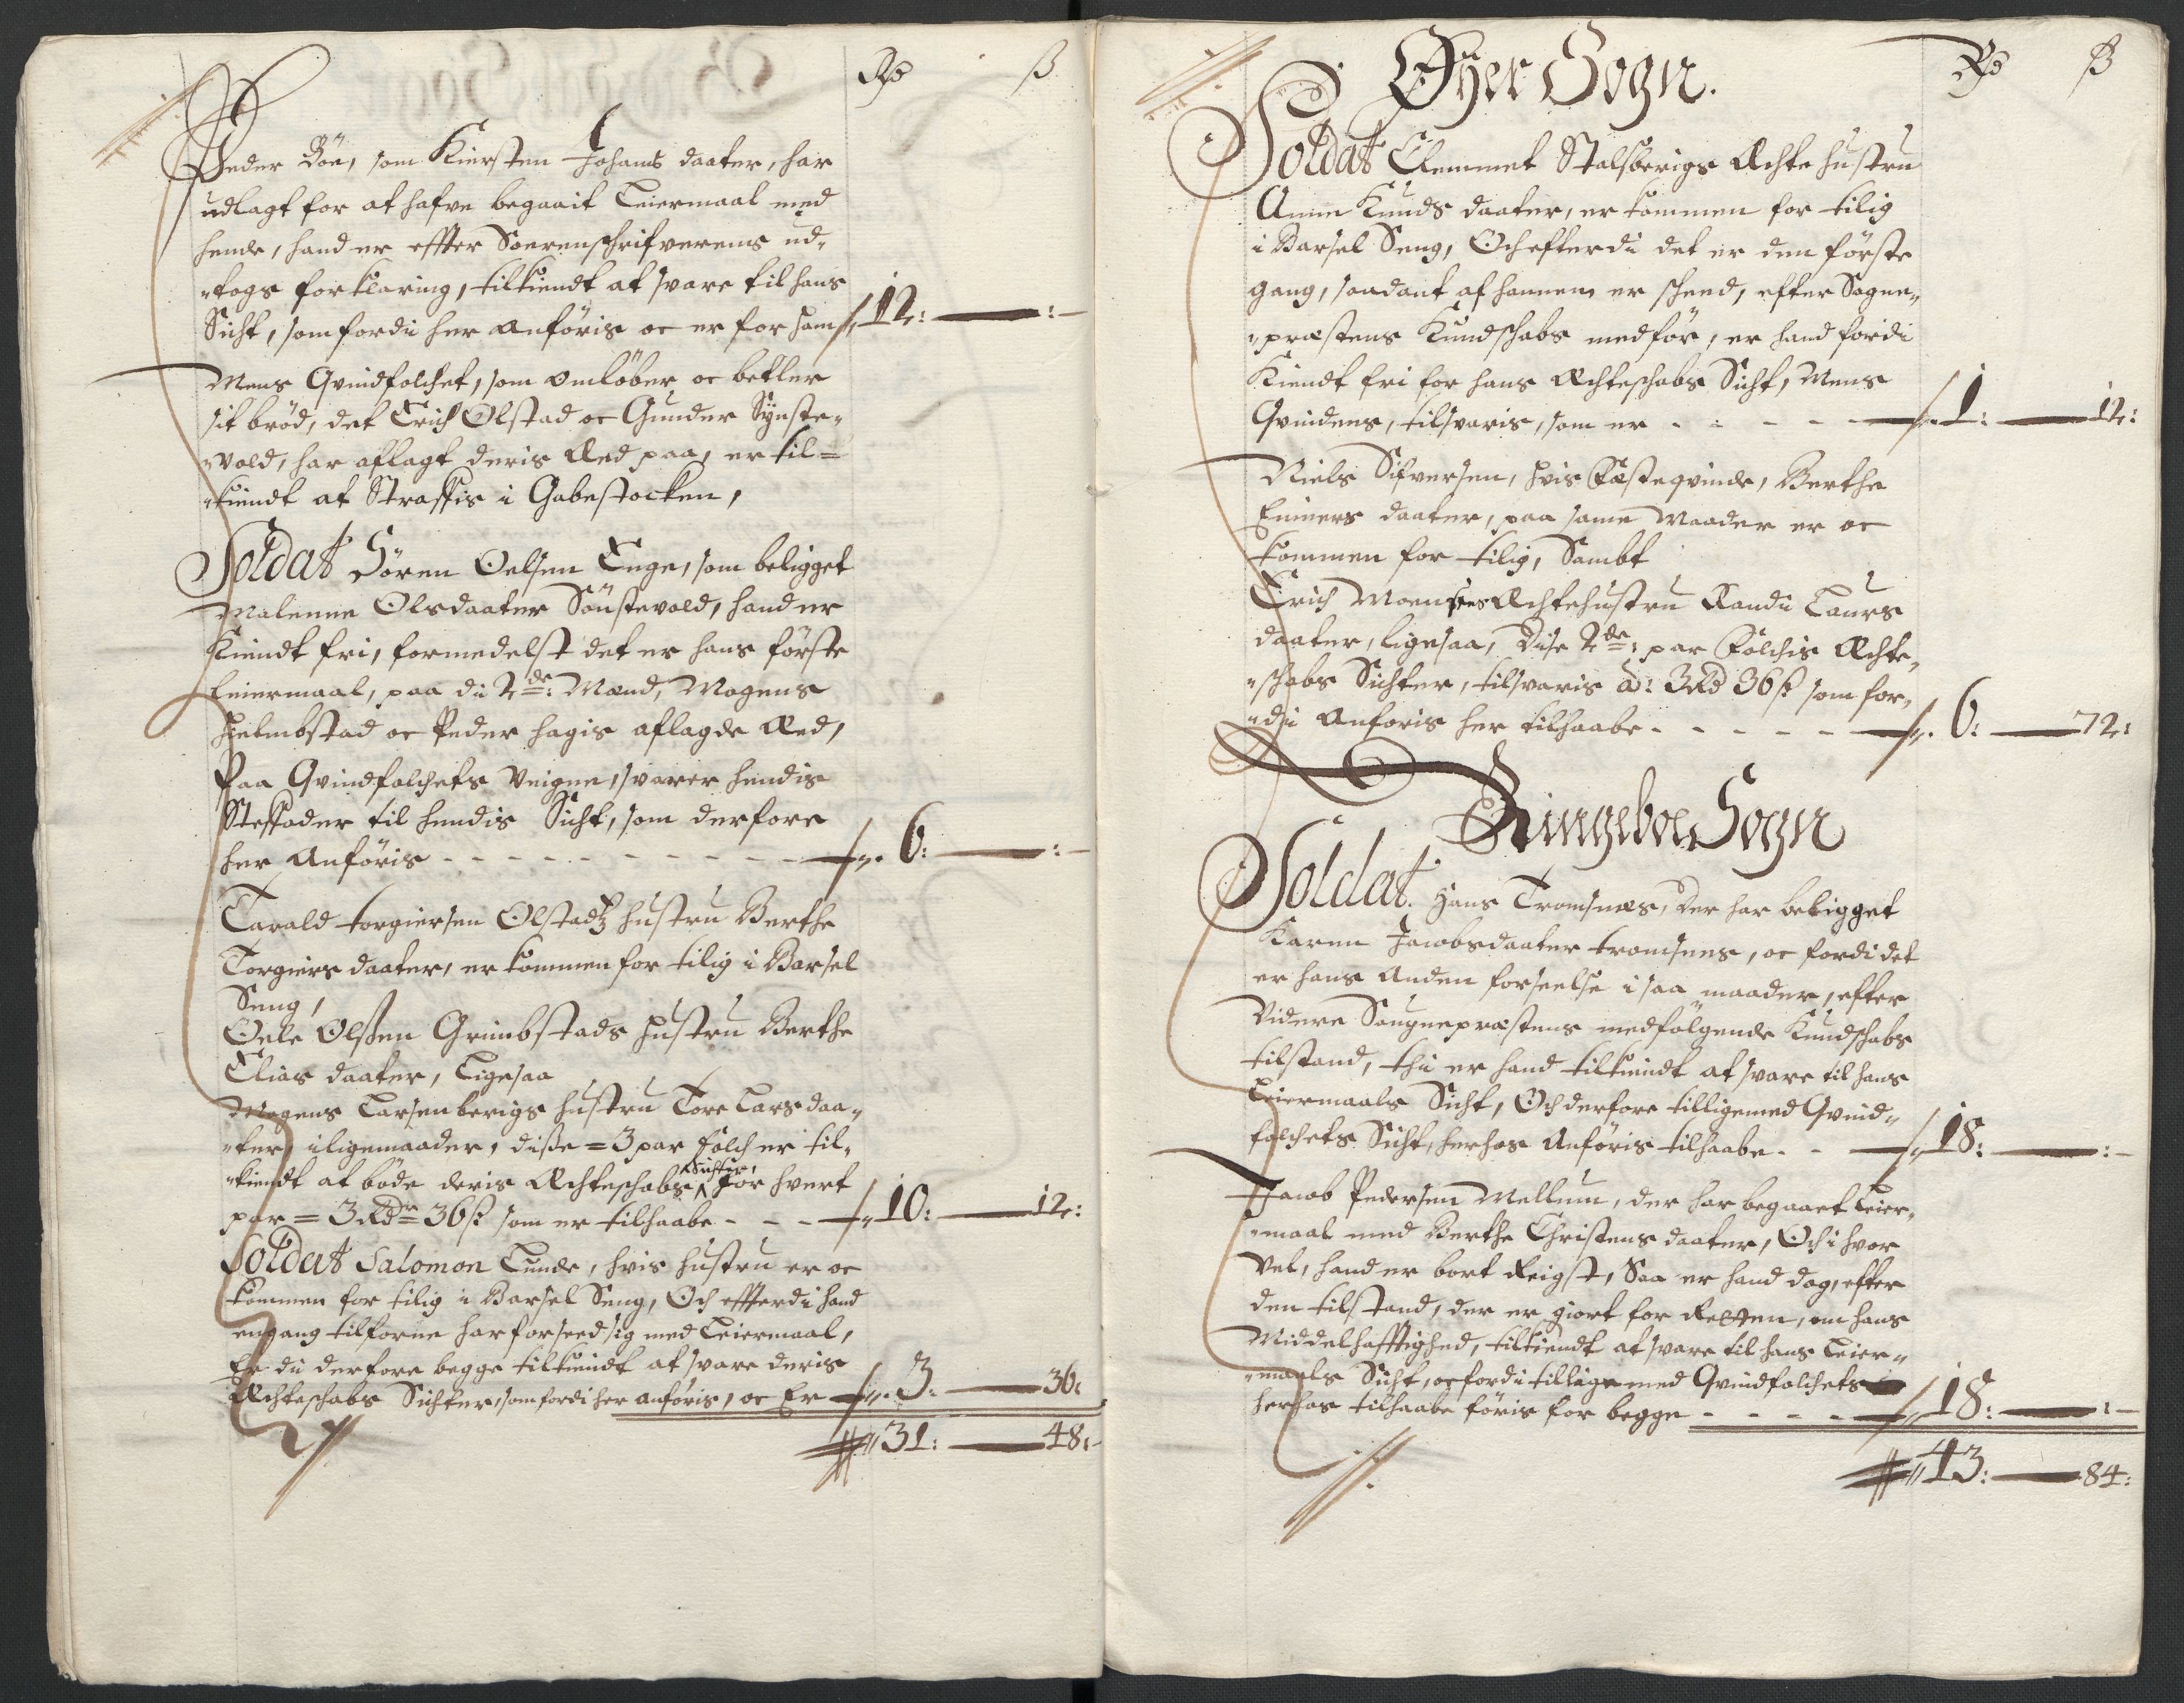 Rd ß
Peder Böe, som Kiersten Johans daater, har
udlagt for at hafve begaait Leiermaal med
hende, hand er effter Sorenschrifverens ud-
"togs forklaring, tilkiendt at svare til hans
Sicht, som fordi her anföris oc er for ham 12: — : —
Mens Qvindfolchet, som omlöber oc betler
sit bröd, det Erich Olstad oc Gunder Synste-
"vold, har aflagt deris Æd paa, er til=
"kiendt at Straffis i Gabestocken,
Soldat Sören Oelsen Enge, som beligget
Malenne Olsdaater Sönstevold, hand er
Kiendt fri, formedelst det er hans förste
Leiermaal, paa di 2de: Mænd, Mogens
Hielmbstad oc Peder Hagis aflagde Æd,
Paa Qvindfolchets Veigne, svarer hendis
Steffader til hendis Sicht, som derfore
her Anföris - - - - - - - - - - 6: — : —
Tarald Torgiersen Olstadtz hustru Berthe
Torgiers daater, er kommen for tilig i Barsel
Seng,
Oele Olßen Grimbstads Hustru Berthe
Elias daater, Ligesaa
Mogens Larsen berigs hustru Tore Lars daa-
"ter, i ligemaader, diße = 3 par folch er til-
"kiendt at böde deris Ächteschabs Sichter, for hvert
par = 3 Rdr 36 ß som er tilhaabe - - - 10: — 12:
Soldat Salomon Lunde, hvis hustru er oc
kommen for tilig i Barsel Seng, Och effterdi hand
engang tilforne har forseed sig med Leiermaal,
Er di derfore begge tilkiendt at svare deris
Ächteschabs Sichter, som fordi her anföris, oc Er 3: — 36:
31: — 48:
Øyer Sogn. Rd ß
Soldat Clemmet Stalsberigs Ächte hustru
Anne Knuds daater, er kommen for tilig
i Barsel Seng, Och efterdi det er den förste
gang, saadant af hannem er scheed, efter Sogne-
"præstens Kundschabs medför, er hand fordi
Kiendt fri for hans Ächteschabs Sicht, Mens
Qvindens, tilsvaris, som er - - - - 1: — 12:
Niels Sifversen, hvis Fästeqvinde, Berthe
Einers daater, paa same Maader er oc
kommen for tilig, Sambt
Erich Moensens Ächtehustru Randi Laurs
daater, ligesaa, Dise 2de: par Folchis Ächte-
"schabs Sichter, tilsvaris á: 3 Rd 36 ß som for-
"di Anforis her tilhaabe - - - - - 6: — 72:
Ringeboe Sogn
Soldat. Hans Tromsnæs, der har beligget
Karen Jacobsdaater tromsnes, oc fordi det
er hans Anden forseelse i saa maader, efter
Videre Sougneprestens medfölgende Kundschabs
tilstand, thi er hand tilkiendt at svare til hans
Leiermaals Sicht, Och derfore tilligemed Qvind-
folchets Sicht, herhos Anföris tilhaabe - - 18: — : —
Jacob Pedersen Mellum, der har begaaet Leier-
"maal med Berthe Christens daater, Och i hvor
Vel, hand er bort Reigst, Saa er hand dog, efter
den tilstand, der er giort for Retten, om hans
Middelhafftighed, tilkiendt at svare til hans Leier-
"maals Sicht, oc fordi tillige med Qvindfolchets
herhos tilhaabe föris for begge - - - - 18: — : —
43: — 84: